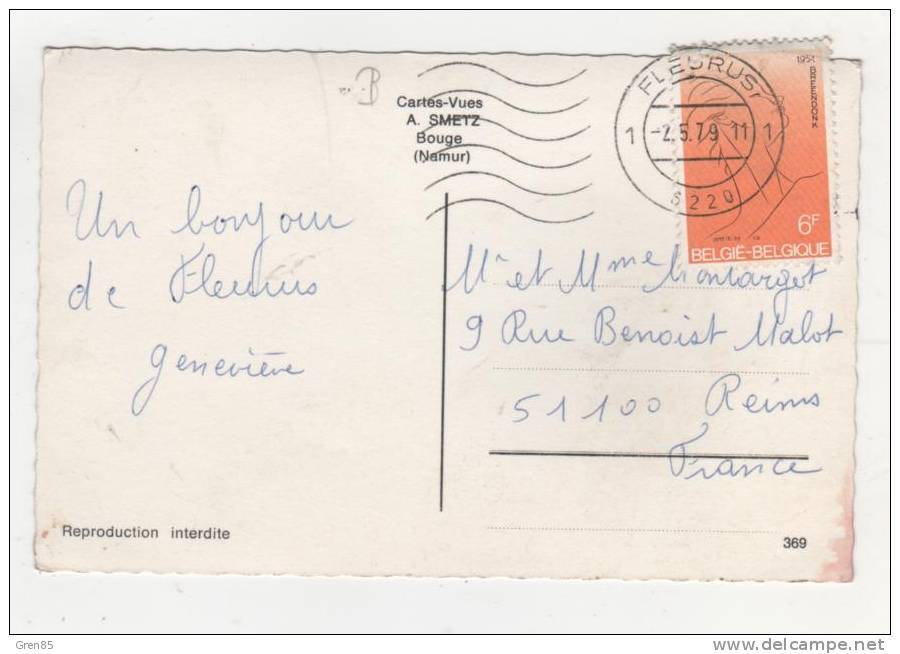 Un bonjour
de Fleurus
Geneviève
Reproduction interdite
B
Cartes-Vues
A. SMETZ
Bouge
(Namur)
FLEURUS
1 -2.5.79 11 1
6220
1954
BREENDONK
6F
BELGIË-BELGIQUE
Mr et Mme Montargot
9 Rue Benoist Malot
51100 Reims
France
369
Gren85
www.delcampe.net